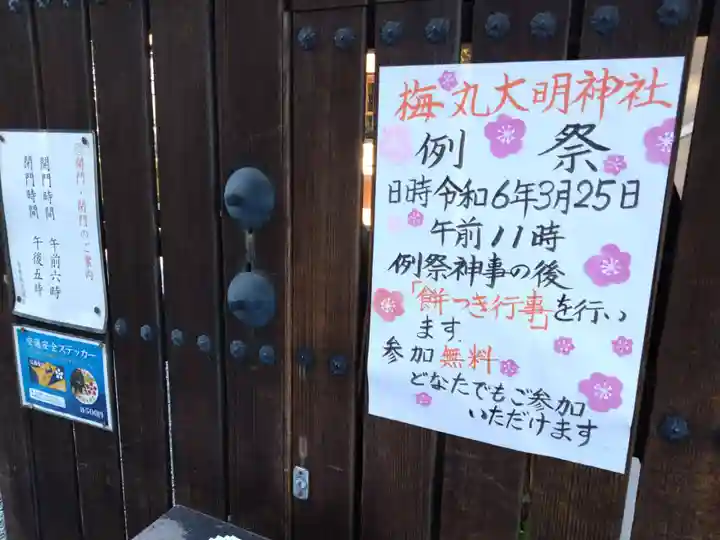 梅丸大明神社
例 祭
日時令和6年3月25日
午前11時
例祭神事の後
「餅つき行事」を行い
ます
参加無料
どなたでもご参加
いただけます
開門・閉門のご案内
開門時間 午前六時
閉門時間 午後五時
交通安全ステッカー
各500円